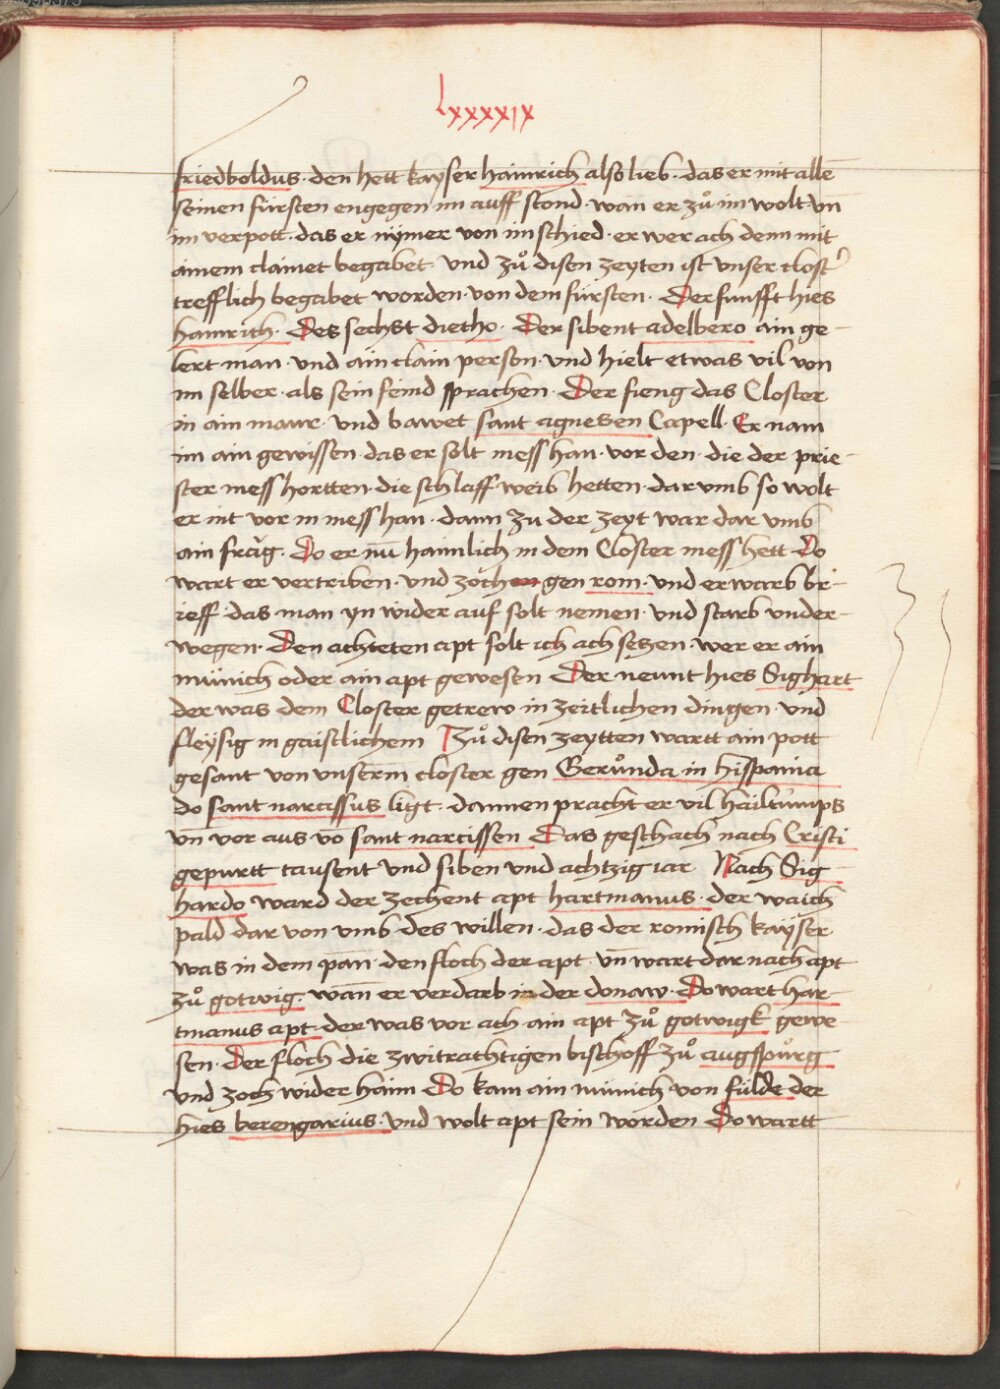 lxxxxix
friedboldus · den hett kayser hainrich also lieb · das er mit allē
seinen fürsten engegen im auff stond · wan er zů im wolt · vn
im verpott · das er nÿmer von im schied · er wer ach denn mit
ainem clainet begabet · vnd zů disen zeyten ist vnser clost᷑
trefflich begabet worden · von dem fürsten · Der funfft hies
hainrich · Des sechst dietho · Der sibent adelbero ain ge-
lert man · vnd ain clain person · vnd hielt etwas vil von
im selber · als sein feind sprachen · Der fieng das Closter
in ain maur · vnd bawet sant agnesen Capell · Er nam
im ain gewissen · das er solt mess han · vor den · die der prie-
ster mess hortten · die schlaff weib hetten · dar vmb so wolt
er nit vor in mess han · dann zu der zeyt war dar vmb
ain fràg · Do er nū haimlich in dem Closter mess hett · Do
wart er vertriben · vnd zoch gen rom · vnd erwarb br-
ieff · das man yn wider auf solt nemen · vnd starb vnder-
wegen · Den achteten apt solt ich ach seczen · wer er ain
münich oder ain apt gewesen Der neunt hies Sighart
der was dem Closter getrew in zeitlichen dingen · vnd
fleÿsig in gaistlichem Zů disen zeytten wartt ain pott
gesant von vnserm closter gen Gerůnda in hispania
do sant narcissus ligt · dannen pracht er vil hailtumps
vn̄ vor aus vō sant narcissen Das geschach nach Cristi
gepurtt tausent vnd siben vnd achtzig iar Nach Sig
hardo ward der zechent apt hartmanus · der waich
pald dar von vmb des willen · das der romisch kaÿser
was in dem pan · den floch der apt · vn̄ wart dar nach apt
zů gotwig · wan̄ er verdarb in der donaw · Do wart har-
tmanus apt · der was vor ach ain apt zů gotwigk gewe-
sen · Der floch die zwitrachtigen bischoff zů augspůrg
vnd zoch wider haim Do kam ain münich von fülde der
hies berengarius · vnd wolt apt sein worden Do wartt